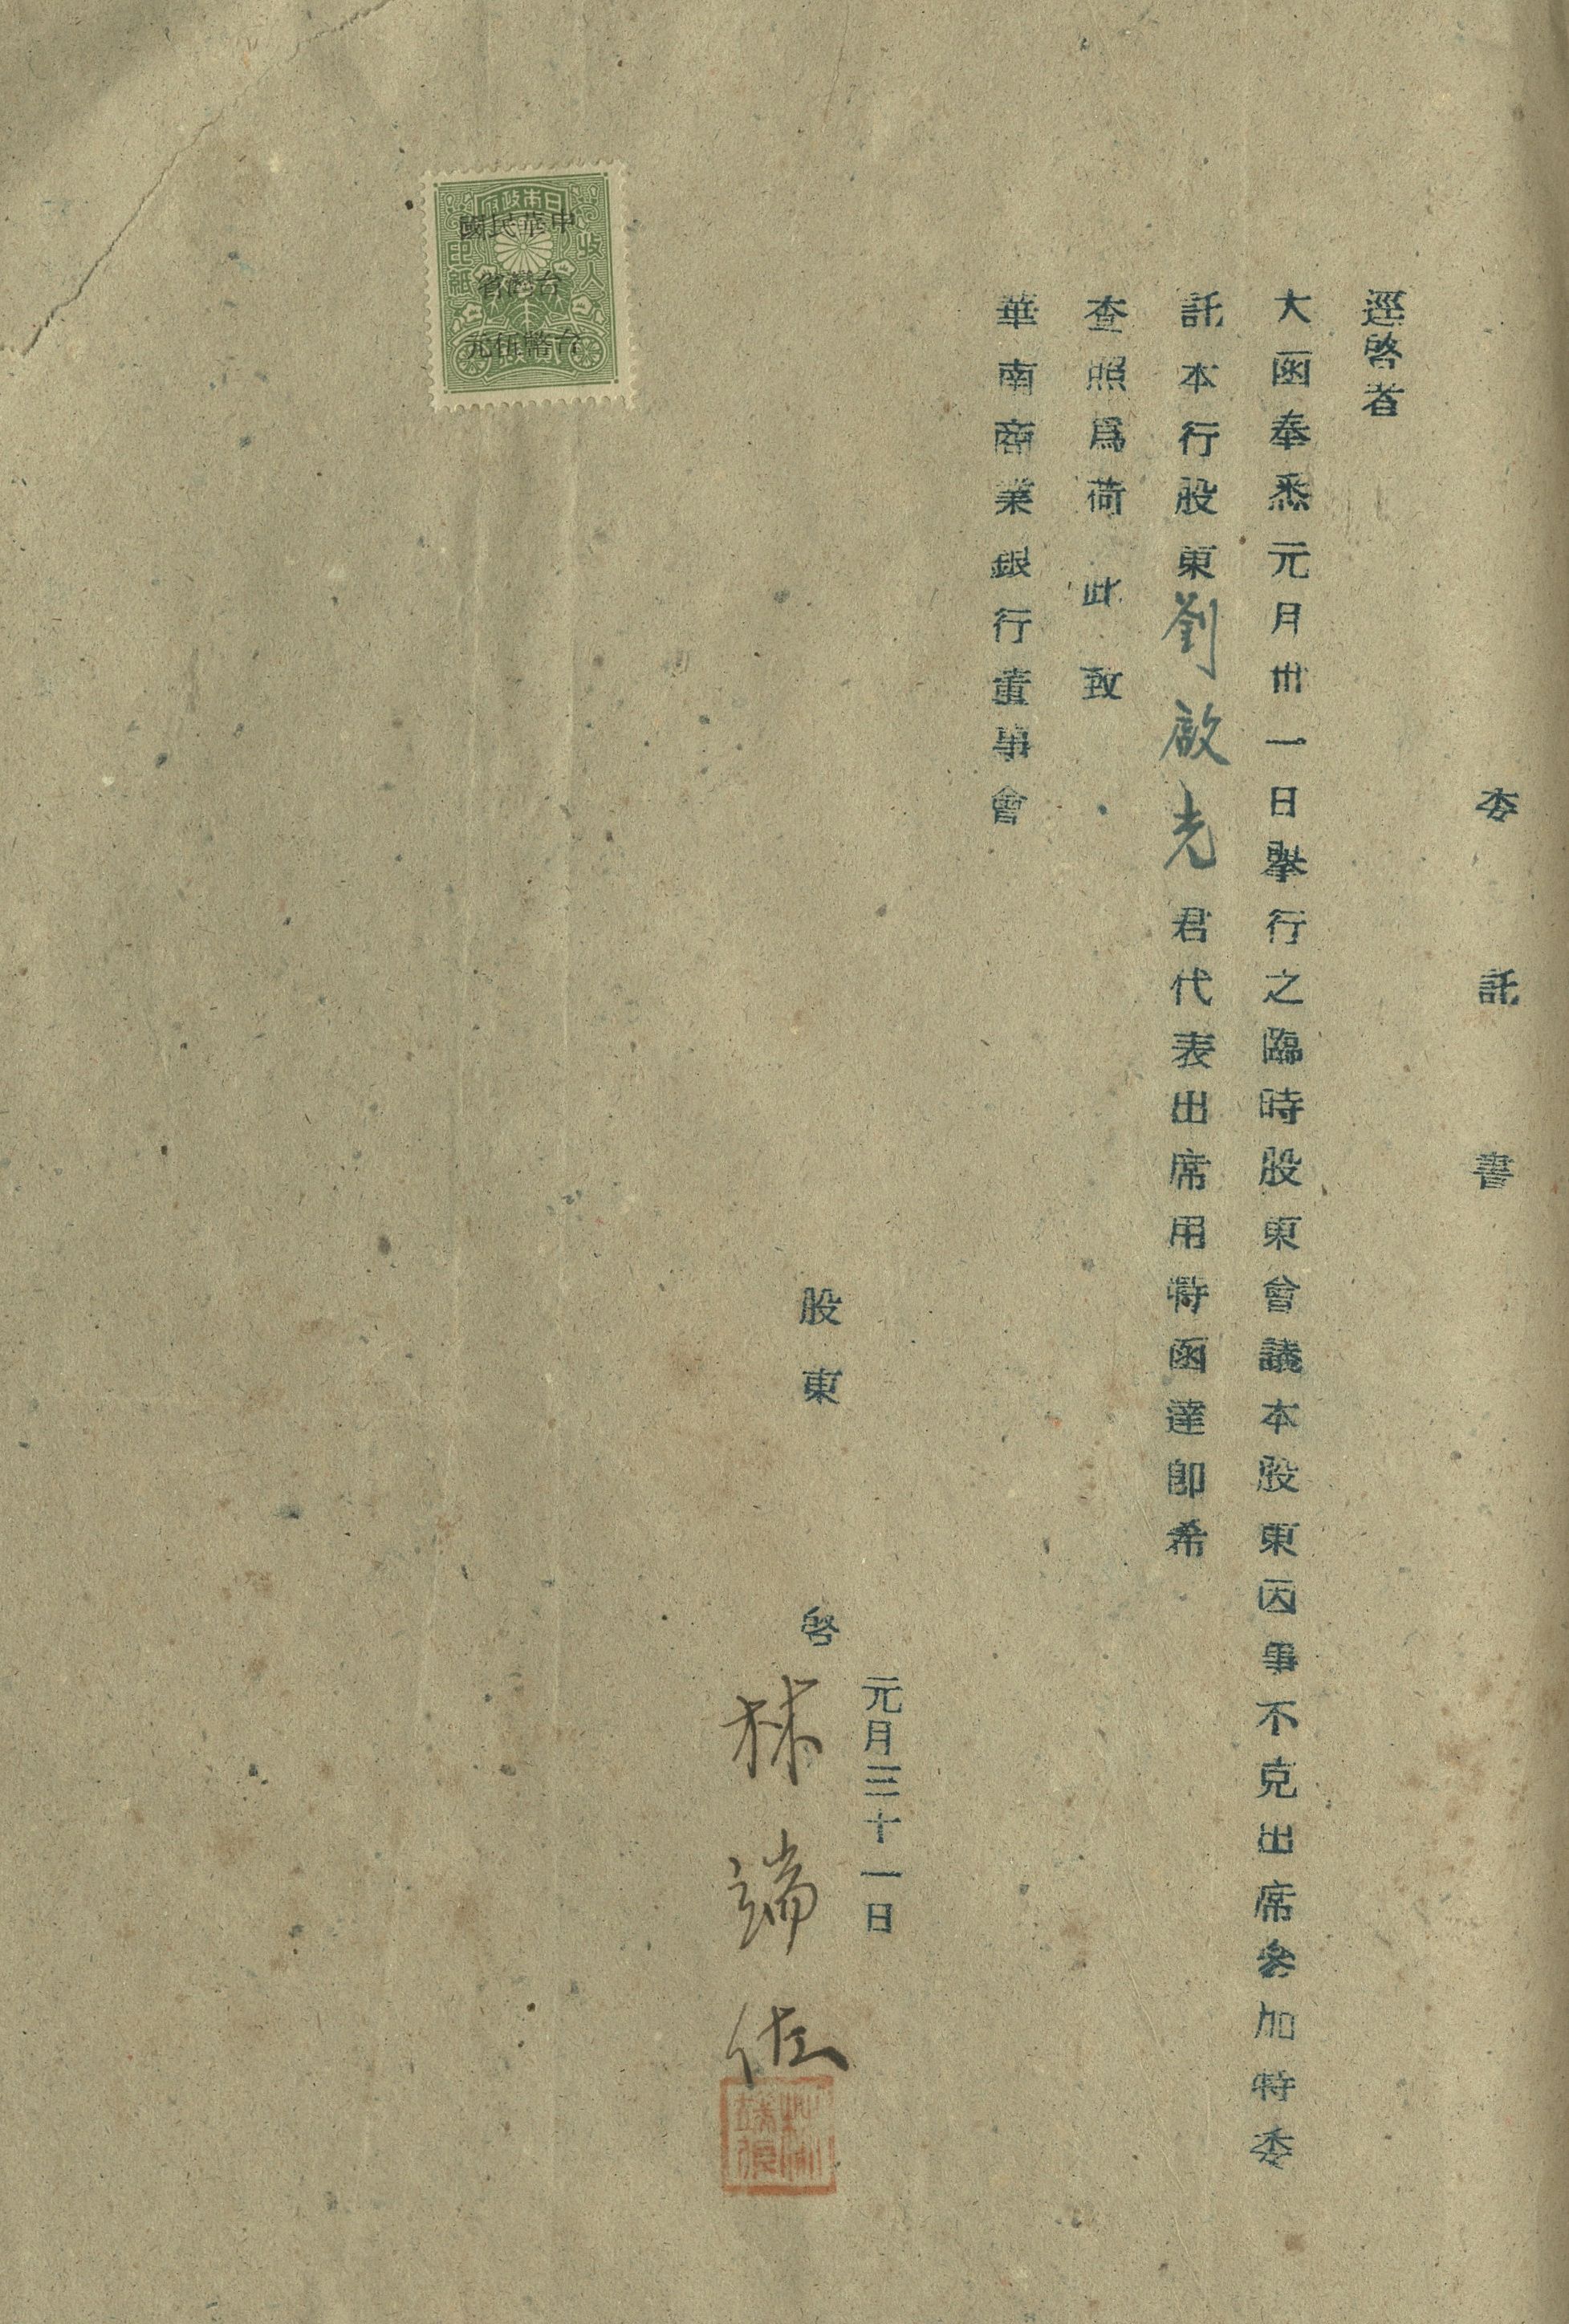 委託書
逕啓者
大函奉悉元月卅一日擧行之臨時股東會議本股東因事不克出席參加特委
託本行股東劉啟光君代表出席用特函達卽希
查照爲荷 此致
華南商業銀行董事會
元月三十一日
股東 啓
林端佐
日本政府
收入
印紙
中華民國
台灣省
台幣伍元